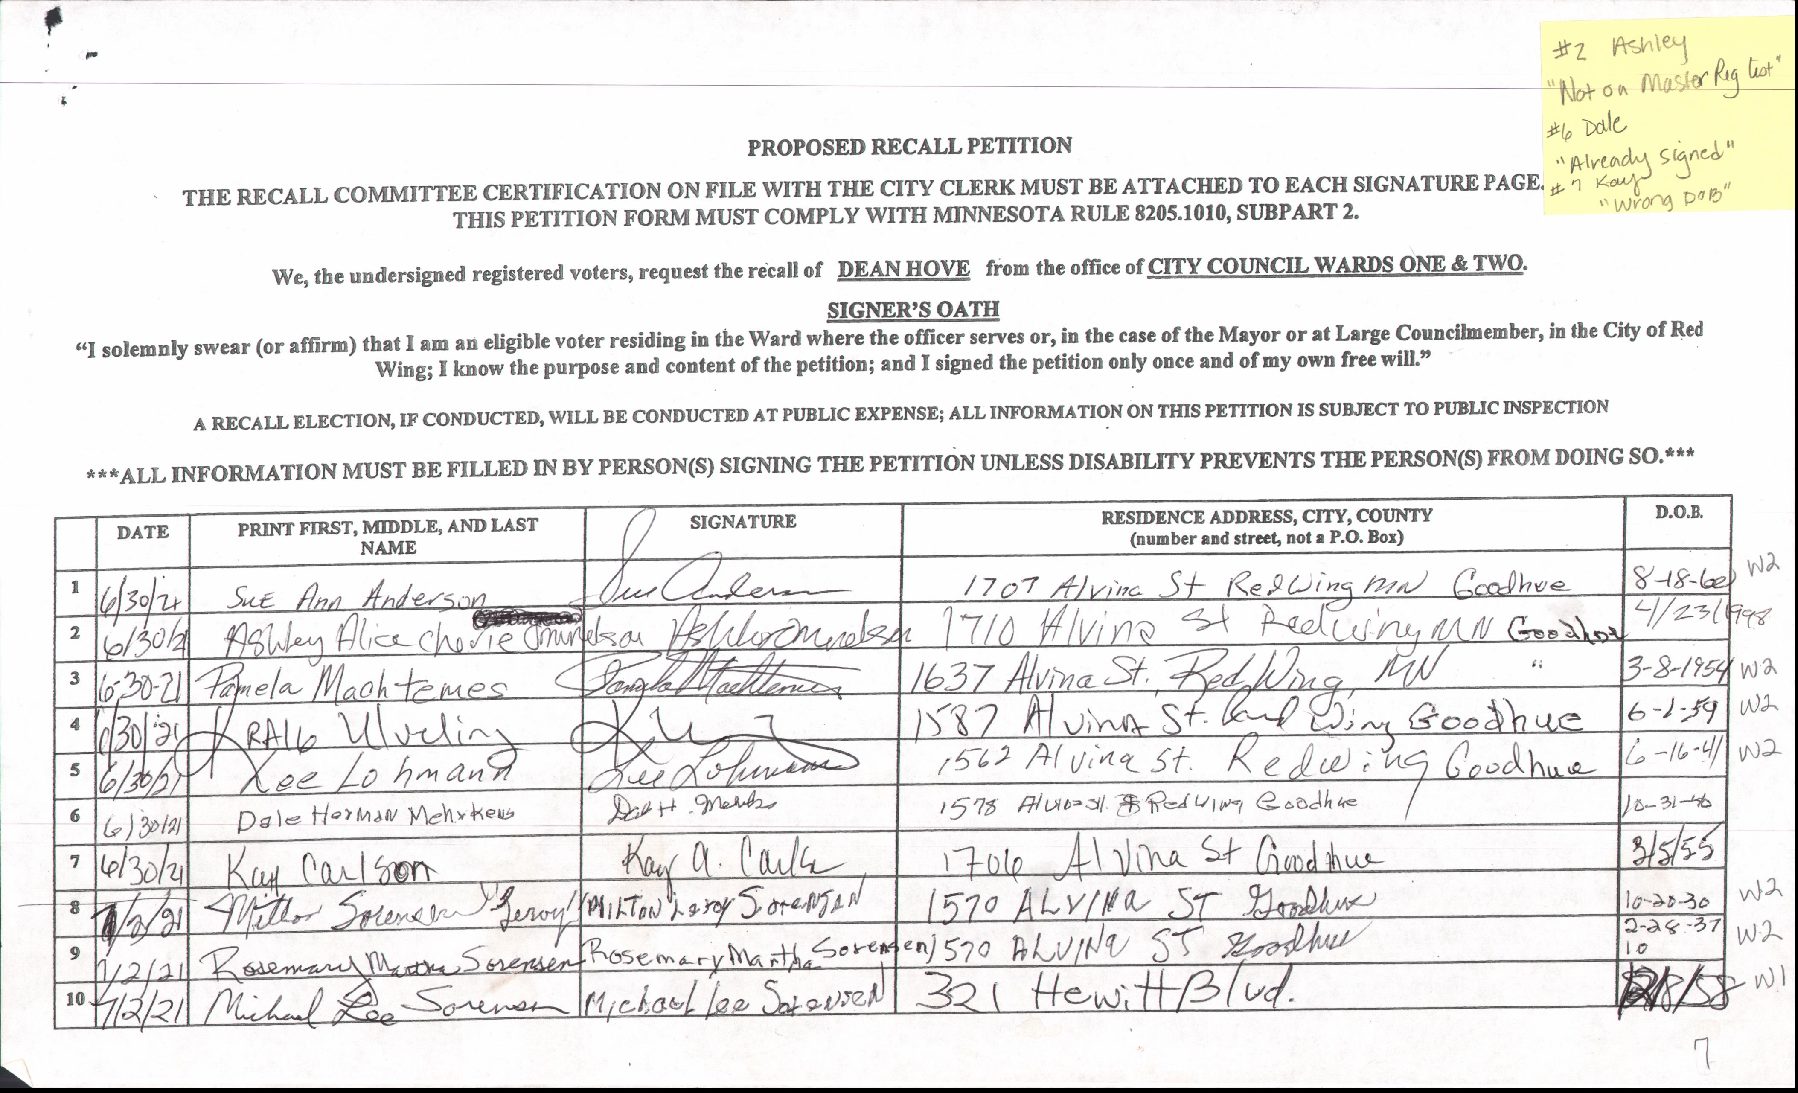 #2 Ashley
"Not on Master Reg list"
#6 Dale
"Already signed"
#7 Kay
"Wrong DOB"
PROPOSED RECALL PETITION
THE RECALL COMMITTEE CERTIFICATION ON FILE WITH THE CITY CLERK MUST BE ATTACHED TO EACH SIGNATURE PAGE.
THIS PETITION FORM MUST COMPLY WITH MINNESOTA RULE 8205.1010, SUBPART 2.
We, the undersigned registered voters, request the recall of DEAN HOVE from the office of CITY COUNCIL WARDS ONE & TWO.
SIGNER'S OATH
"I solemnly swear (or affirm) that I am an eligible voter residing in the Ward where the officer serves or, in the case of the Mayor or at Large Councilmember, in the City of Red
Wing; I know the purpose and content of the petition; and I signed the petition only once and of my own free will."
A RECALL ELECTION, IF CONDUCTED, WILL BE CONDUCTED AT PUBLIC EXPENSE; ALL INFORMATION ON THIS PETITION IS SUBJECT TO PUBLIC INSPECTION
***ALL INFORMATION MUST BE FILLED IN BY PERSON(S) SIGNING THE PETITION UNLESS DISABILITY PREVENTS THE PERSON(S) FROM DOING SO.***
DATE PRINT FIRST, MIDDLE, AND LAST NAME SIGNATURE RESIDENCE ADDRESS, CITY, COUNTY (number and street, not a P.O. Box) D.O.B.
1 6/30/21 Sue Ann Anderson Sue Anderson 1707 Alvina St Red Wing MN Goodhue 8-18-60 W2
2 6/30/21 Ashley Alice Cherie 1710 Alvina St Redwing MN Goodhue 4/23/1998
3 6-30-21 Pamela Machtemes Pamela Machtemes 1637 Alvina St., Red Wing, MN " 3-8-1954 W2
4 6/30/21 Ulveling 1587 Alvina St. Wing Goodhue 6-1-59 W2
5 6/30/21 Lee Lohmann Lee Lohmann 1562 Alvina St. Redwing Goodhue 6-16-41 W2
6 6/30/21 Dale Herman Mehrkens 1578 Alvina St. Red Wing Goodhue 10-31-
7 6/30/21 Kay Carlson Kay A. 1706 Alvina St Goodhue 3/5/55
8 7/2/21 Sorensen Leroy MILTON Leroy SorensEN 1570 ALVINA ST Goodhue 10-20-30 W2
9 7/2/21 Rosemary Martha Sorensen Rosemary Martha Sorensen 1570 ALVINA ST Goodhue 2-28-37 10 W2
10 7/2/21 Michael Lee Sorensen Michael Lee SorensEN 321 Hewitt Blvd. 8/58 W1
7